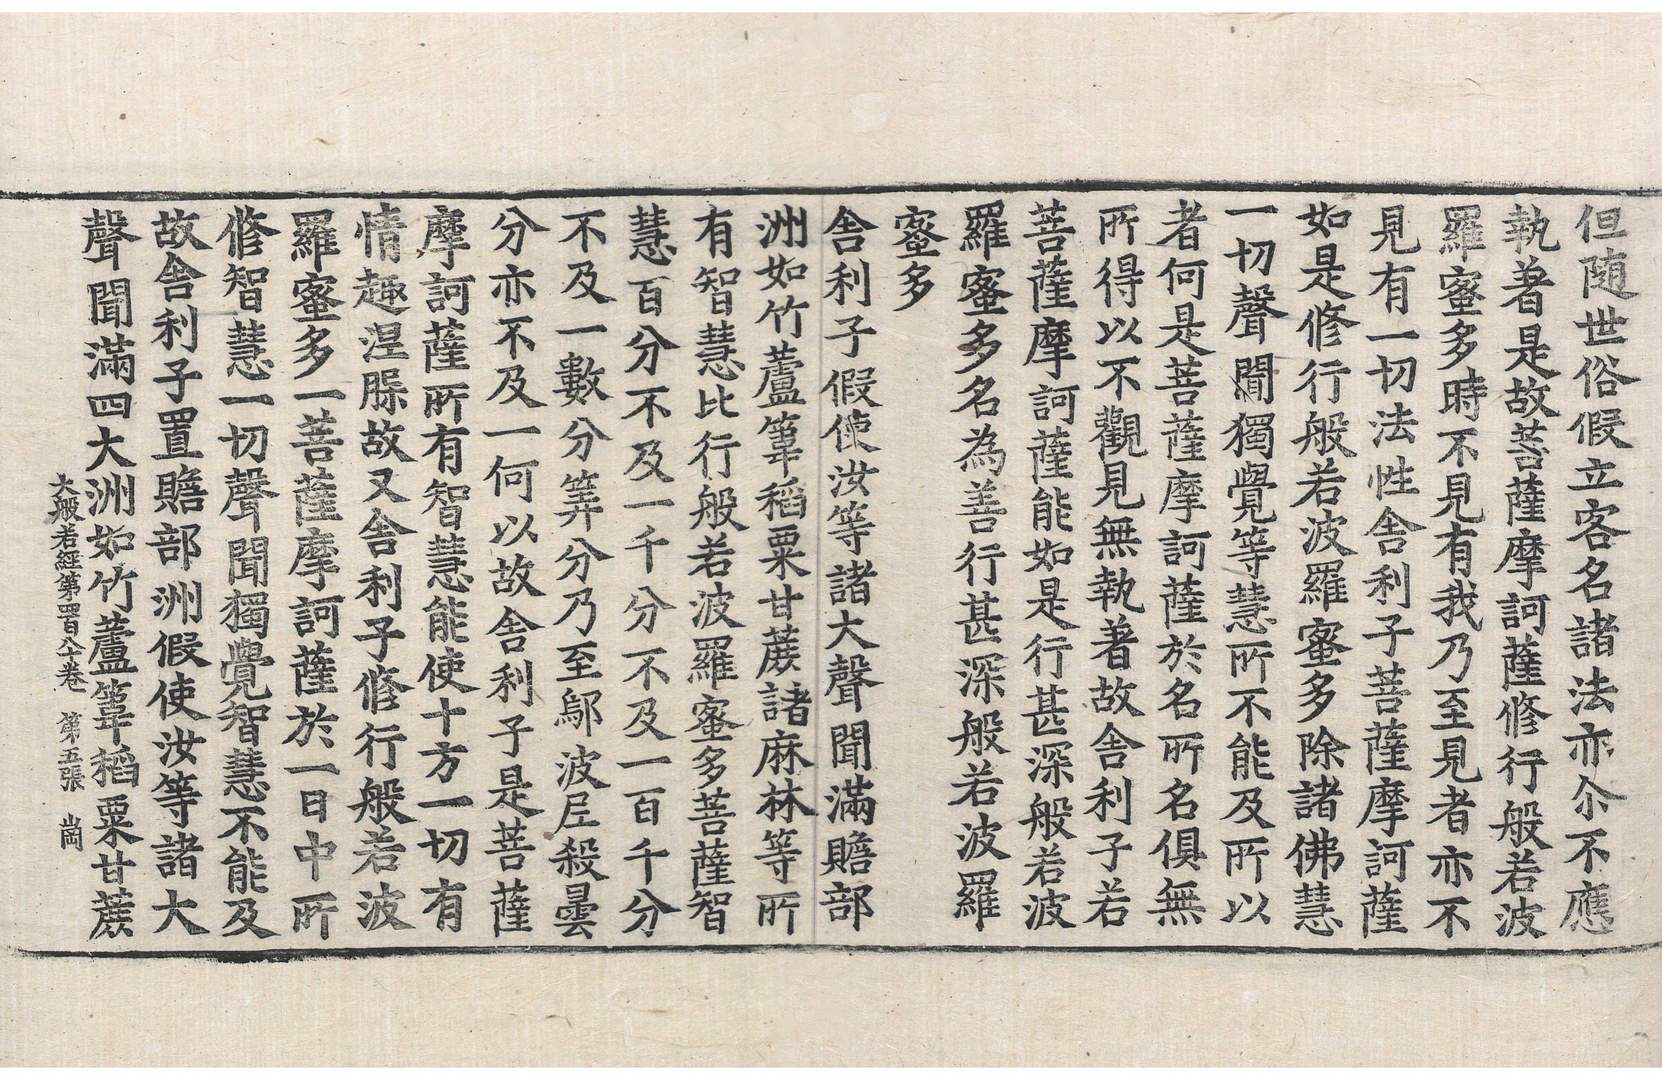 但随世俗假立客名諸法亦尒不應
執著是故菩薩摩訶薩修行般若波
羅蜜多時不見有我乃至見者亦不
見有一切法性舎利子菩薩摩訶薩
如是修行般若波羅蜜多除諸佛慧
一切聲聞獨覺等慧所不能及所以
者何是菩薩摩訶薩於名所名俱無
所得以不觀見無執著故舎利子若
菩薩摩訶薩能如是行甚深般若波
羅蜜多名為善行甚深般若波羅
蜜多
舎利子假使汝等諸大聲聞滿贍部
洲如竹蘆葦稻粟甘蔗諸麻林等所
有智慧比行般若波羅蜜多菩薩智
慧百分不及一千分不及一百千分
不及一數分筭分乃至鄔波尼殺曇
分亦不及一何以故舎利子是菩薩
摩訶薩所有智慧能使十方一切有
情趣涅槃故又舎利子修行般若波
羅蜜多一菩薩摩訶薩於一日中所
修智慧一切聲聞獨覺智慧不能及
故舎利子置贍部洲假使汝等諸大
聲聞滿四大洲如竹蘆葦稻粟甘蔗
大般若經第四百八十卷 第五張 崗